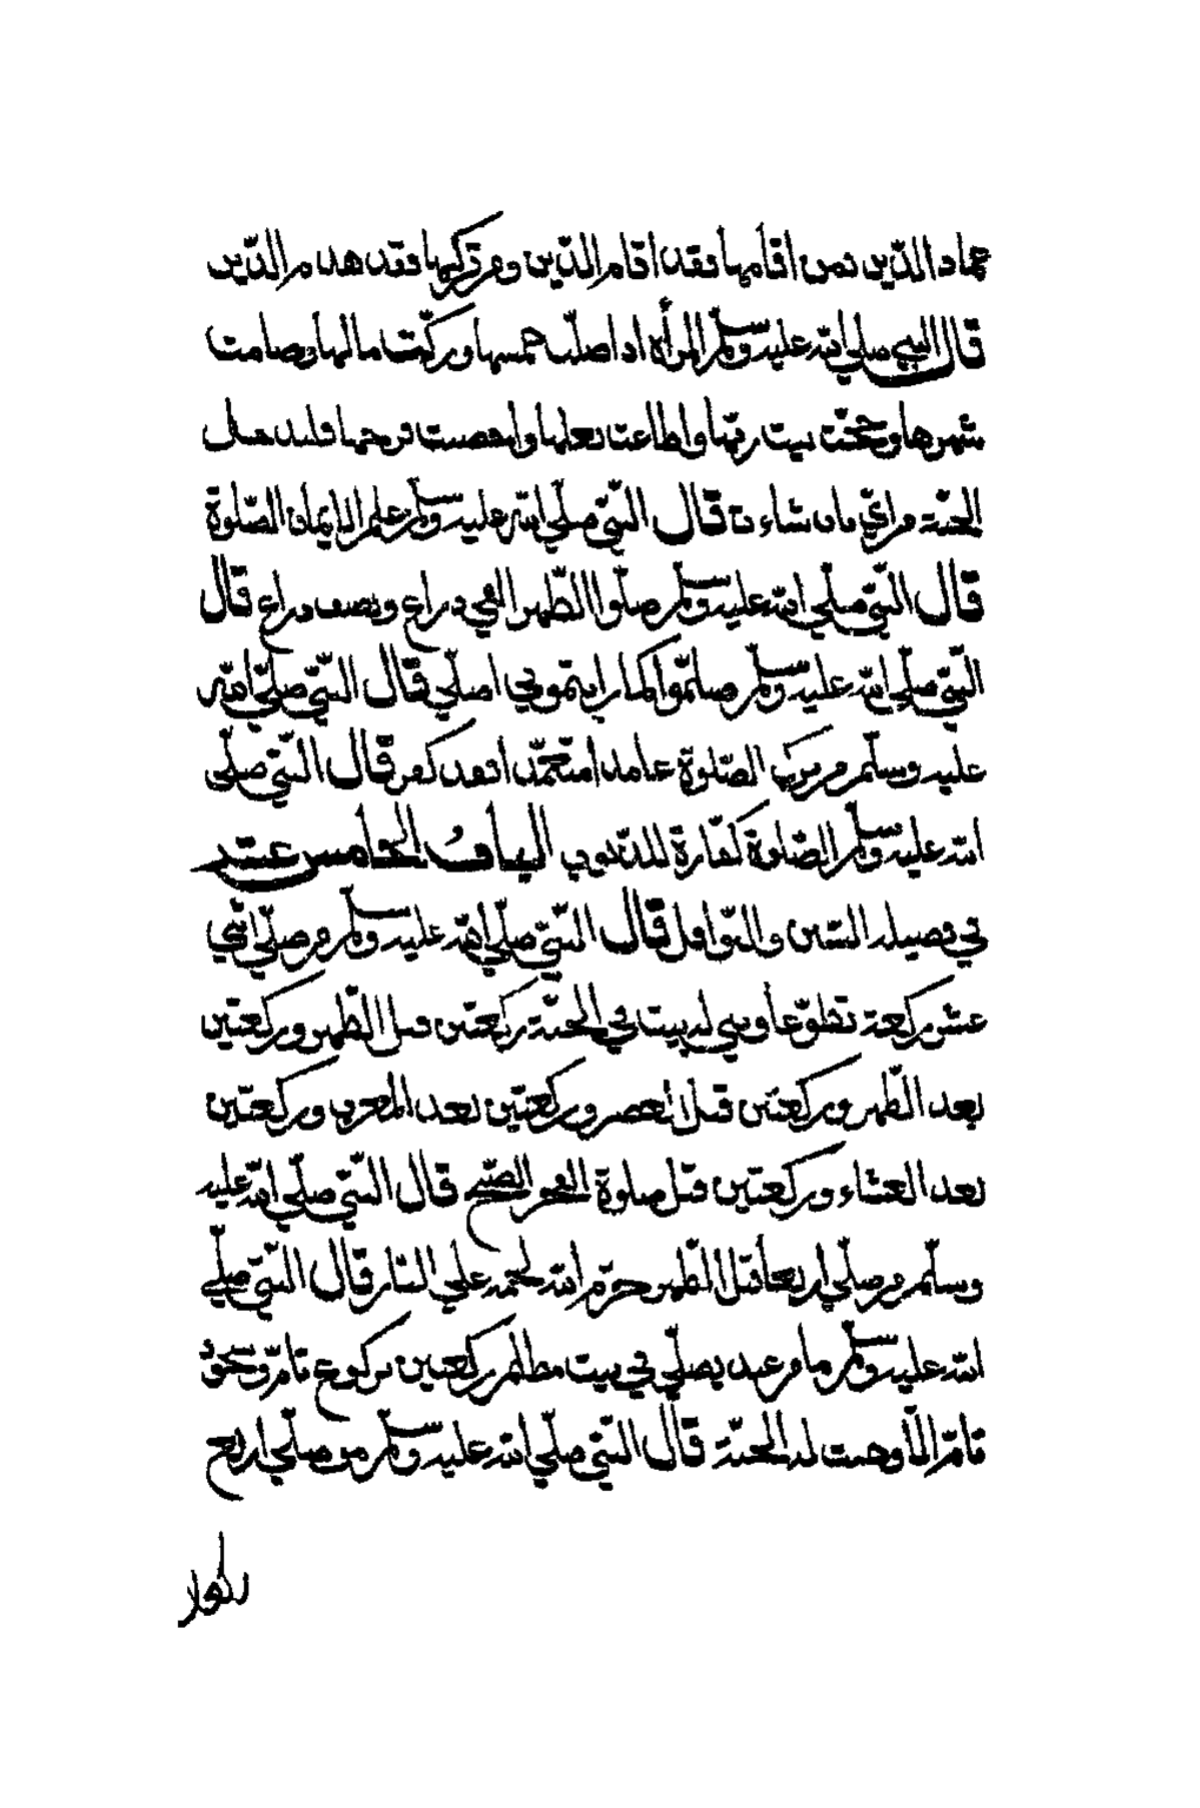 عماد الدّين فمن اقامها فقد اقام الدّين ومن تركها فقد هدم الدّين
قال النبي صلي الله عليه وسلم المرأة اذا صلّت خمسها وزكّت مالها وصامت
شهرها وحجّت بيت ربّها واطاعت بعلها واحصنت فرجها فليدخل
الجنّة من ايّ باب شاءت قال النّبيّ صلّي الله عليه وسلم علم الايمان الصّلوة
قال النّبيّ صلّي الله عليه وسلم صلّوا الظّهر الفي ذراع ونصف ذراع قال
النّبيّ صلّي الله عليه وسلم صلّوا كما رايتموني اصلّي قال النّبيّ صلّي الله
عليه وسلّم من ترك الصّلوة عامدا متعمّدا فقد كفر قال النّبيّ صلّي
الله عليه وسلم الصّلوة كفّارة للذّنوب الباب الخامس عشر
في فضيلة السّنن والنّوافل قال النّبيّ صلّي الله عليه وسلم من صلّي اثني
عشر ركعة تطوّعا وبني له بيت في الجنّة ركعتين قبل الظّهر وركعتين
بعد الظّهر وركعتين قبل العصر وركعتين بعد المغرب وركعتين
بعد العشاء وركعتين قبل صلوة الفجر الصّبح قال النّبيّ صلّي الله عليه
وسلّم من صلّي اربعا قبل الظّهر حرّم الله لحمه علي النّار قال النّبيّ صلّي
الله عليه وسلم ما من عبد يصلّي في بيت مظلم ركعتين بركوع تامّ وسجود
تامّ الّا وجبت له الجنّة قال النّبيّ صلّي الله عليه وسلم من صلّي اربع